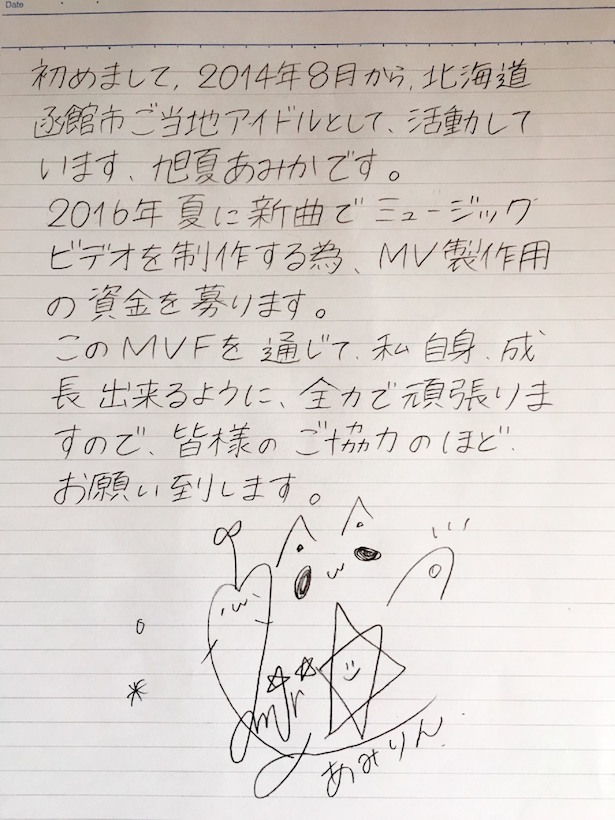 Date
初めまして、2014年8月から、北海道
函館市ご当地アイドルとして、活動して
います、旭夏あみかです。
2016年夏に新曲でミュージック
ビデオを制作する為、MV製作用
の資金を募ります。
このMVFを通じて、私自身、成
長出来るように、全力で頑張りま
すので、皆様のご協力のほど、
お願い到します。
あみりん